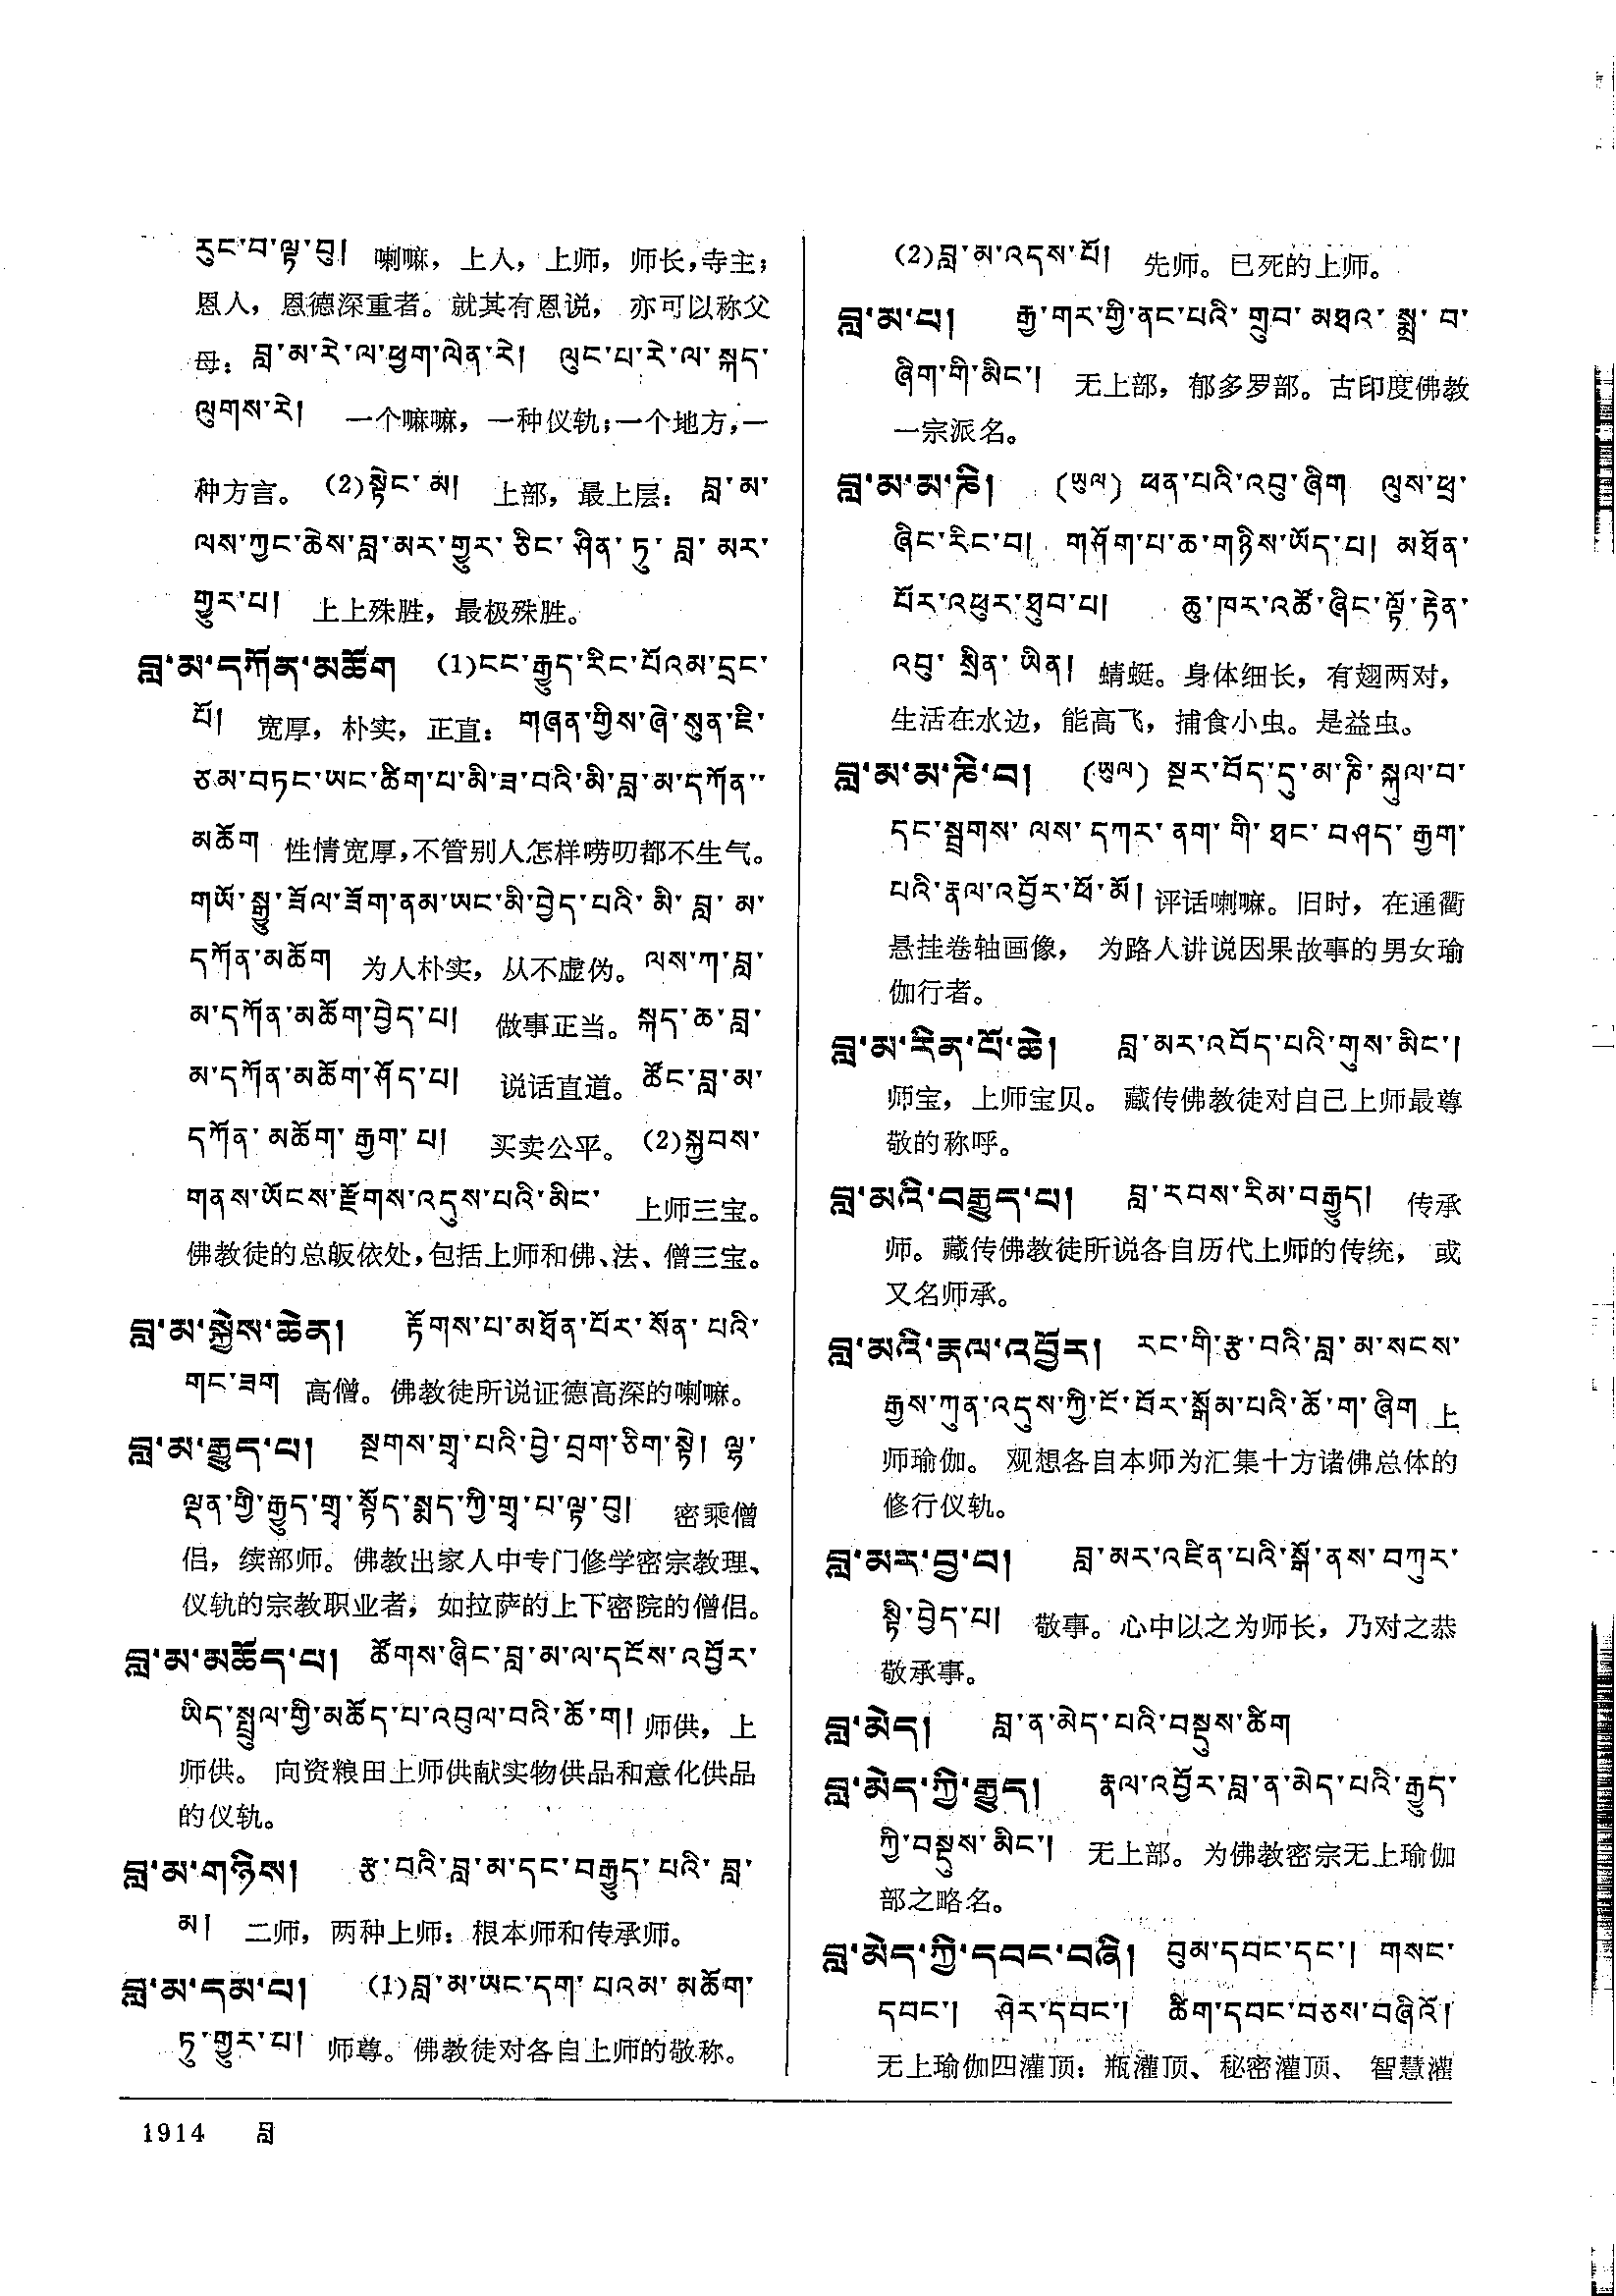 རུང་བ་ལྟ་བུ། 喇嘛，上人，上师，师长，寺主；
恩人，恩德深重者。就其有恩说，亦可以称父
母：བླ་མ་རེ་ལ་ཕྱག་ལེན་རེ། ལུང་པ་རེ་ལ་སྐད་
ལུགས་རེ། 一个嘛嘛，一种仪轨；一个地方，一
种方言。(2)སྟེང་མ། 上部，最上层：བླ་མ་
ལས་ཀྱང་ཆེས་བླ་མར་གྱུར་ཅིང་ཤིན་ཏུ་བླ་མར་
གྱུར་པ། 上上殊胜，最极殊胜。
བླ་མ་དཀོན་མཆོག (1)ངང་རྒྱུད་རིང་པོའམ་དྲང་
པོ། 宽厚，朴实，正直：གཞན་གྱིས་ཞེ་སུན་ཇི་
ཙམ་བཏང་ཡང་ཚིག་པ་མི་ཟ་བའི་མི་བླ་མ་དཀོན་
མཆོག 性情宽厚，不管别人怎样唠叨都不生气。
གཡོ་སྒྱུ་ཟོལ་ཟོག་ནམ་ཡང་མི་བྱེད་པའི་མི་བླ་མ་
དཀོན་མཆོག 为人朴实，从不虚伪。ལས་ཀ་བླ་
མ་དཀོན་མཆོག་བྱེད་པ། 做事正当。སྐད་ཆ་བླ་
མ་དཀོན་མཆོག་ཤོད་པ། 说话直道。ཚོང་བླ་མ་
དཀོན་མཆོག་རྒྱག་པ། 买卖公平。(2)སྐྱབས་
གནས་ཡོངས་རྫོགས་འདུས་པའི་མིང་ 上师三宝。
佛教徒的总皈依处，包括上师和佛、法、僧三宝。
བླ་མ་སྐྱེས་ཆེན། རྟོགས་པ་མཐོན་པོར་སོན་པའི་
གང་ཟག 高僧。佛教徒所说证德高深的喇嘛。
བླ་མ་རྒྱུད་པ། སྔགས་གྲྭ་པའི་བྱེ་བྲག་ཅིག་སྟེ། ལྷ་
ལྡན་གྱི་རྒྱུད་གྲྭ་སྟོད་སྨད་ཀྱི་གྲྭ་པ་ལྟ་བུ། 密乘僧
侣，续部师。佛教出家人中专门修学密宗教理、
仪轨的宗教职业者，如拉萨的上下密院的僧侣。
བླ་མ་མཆོད་པ། ཚོགས་ཞིང་བླ་མ་ལ་དངོས་འབྱོར་
ཡིད་སྤྲུལ་གྱི་མཆོད་པ་འབུལ་བའི་ཆོ་ག། 师供，上
师供。向资粮田上师供献实物供品和意化供品
的仪轨。
བླ་མ་གཉིས། རྩ་བའི་བླ་མ་དང་བརྒྱུད་པའི་བླ་
མ། 二师，两种上师：根本师和传承师。
བླ་མ་དམ་པ། (1)བླ་མ་ཡང་དག་པའམ་མཆོག་
ཏུ་གྱུར་པ། 师尊。佛教徒对各自上师的敬称。
(2)བླ་མ་འདས་པོ། 先师。已死的上师。
བླ་མ་པ། རྒྱ་གར་གྱི་ནང་པའི་གྲུབ་མཐའ་སྨྲ་བ་
ཞིག་གི་མིང་། 无上部，郁多罗部。古印度佛教
一宗派名。
བླ་མ་མ་ཎི། (ཡུལ) ཕན་པའི་འབུ་ཞིག ལུས་ཕྲ་
ཞིང་རིང་བ། གཤོག་པ་ཆ་གཉིས་ཡོད་པ། མཐོན་
པོར་འཕུར་ཐུབ་པ། ཆུ་ཁར་འཚོ་ཞིང་ལྟོ་རྟེན་
འབུ་སྲིན་ཡིན། 蜻蜓。身体细长，有翅两对，
生活在水边，能高飞，捕食小虫。是益虫。
བླ་མ་མ་ཎི་བ། (ཡུལ) སྔར་བོད་དུ་མ་ཎི་སྐུལ་བ་
དང་སྦྲགས་ལས་དཀར་ནག་གི་ཐང་བཤད་རྒྱག་
པའི་རྣལ་འབྱོར་ཕོ་མོ། 评话喇嘛。旧时，在通衢
悬挂卷轴画像，为路人讲说因果故事的男女瑜
伽行者。
བླ་མ་རིན་པོ་ཆེ། བླ་མར་འབོད་པའི་གུས་མིང་།
师宝，上师宝贝。藏传佛教徒对自己上师最尊
敬的称呼。
བླ་མའི་བརྒྱུད་པ། བླ་རབས་རིམ་བརྒྱུད། 传承
师。藏传佛教徒所说各自历代上师的传统，或
又名师承。
བླ་མའི་རྣལ་འབྱོར། རང་གི་རྩ་བའི་བླ་མ་སངས་
རྒྱས་ཀུན་འདུས་ཀྱི་ངོ་བོར་སྒོམ་པའི་ཆོ་ག་ཞིག 上
师瑜伽。观想各自本师为汇集十方诸佛总体的
修行仪轨。
བླ་མར་བྱ་བ། བླ་མར་འཛིན་པའི་སྒོ་ནས་བཀུར་
སྟི་བྱེད་པ། 敬事。心中以之为师长，乃对之恭
敬承事。
བླ་མེད། བླ་ན་མེད་པའི་བསྡུས་ཚིག
བླ་མེད་ཀྱི་རྒྱུད། རྣལ་འབྱོར་བླ་ན་མེད་པའི་རྒྱུད་
ཀྱི་བསྡུས་མིང་། 无上部。为佛教密宗无上瑜伽
部之略名。
བླ་མེད་ཀྱི་དབང་བཞི། བུམ་དབང་དང་། གསང་
དབང་། ཤེར་དབང་། ཚིག་དབང་བཅས་བཞིའོ།
无上瑜伽四灌顶：瓶灌顶、秘密灌顶、智慧灌
1914 བླ